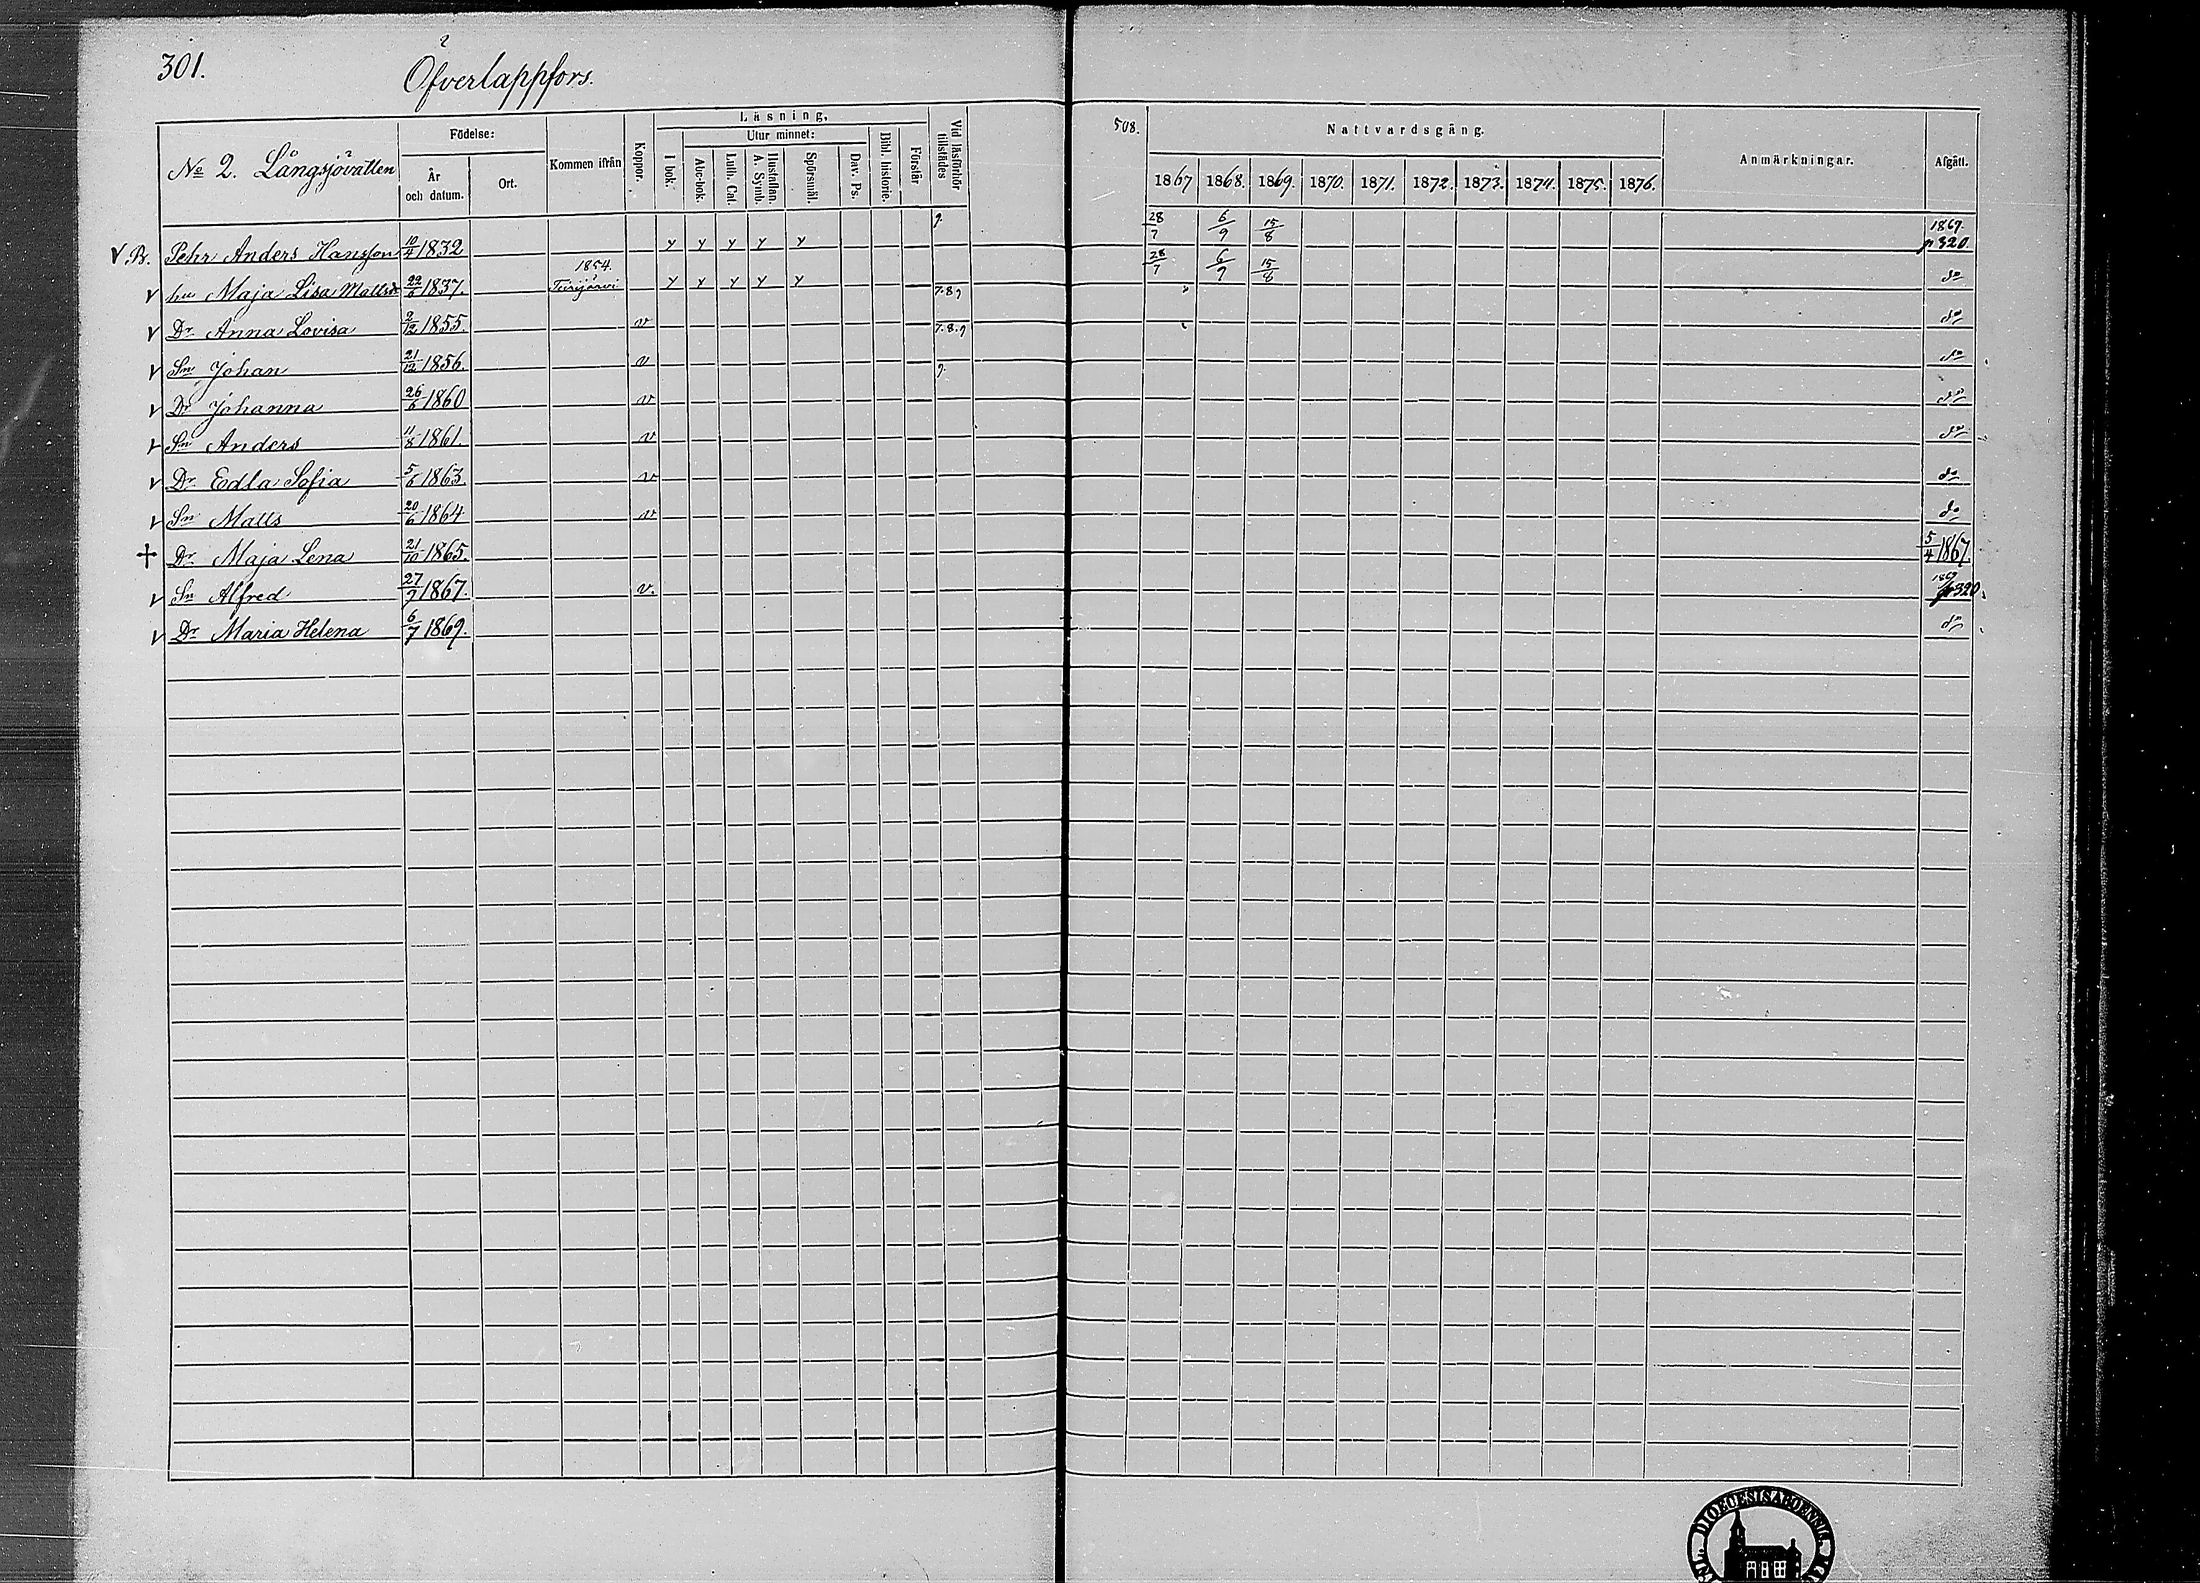 301.
Öfverlappfors.
508.
No 2. Långsjövallen
Födelse:
År och datum.
Ort.
Kommen ifrån
Koppor.
Läsning,
I bok.
Utur minnet:
Abc-bok.
Luth. Cat.
Hustaflan. A. Symb.
Spörsmål.
Dav. Ps.
Bibl. historie.
Förstår
Vid läsförhör tillstädes
Nattvardsgång.
1867 1868. 1869. 1870. 1871. 1872. 1873. 1874. 1875. 1876.
Anmärkningar.
Afgått.
V. B. Pehr Anders Hansson 10/4 1832 y y y y y 9. 28/7 6/9 15/8 1869. p 320
v hu Maja Lisa Mattsdr 22/6 1837. 1854. Terijärvi y y y y y 7.8 9 28/7 6/9 15/8 do
v Dr Anna Lovisa 2/12 1855. v 7.8.9 do
v Sn Johan 21/12 1856. v 9. do
v Dr Johanna 26/6 1860 v do
v Sn Anders 11/8 1861. v do
v Dr Edla Sofia 5/6 1863. v do
v Sn Matts 20/6 1864 v do
+ Dr Maja Lena 21/10 1865. 5/4 1867.
v Sn Alfred 27/7 1867. v. 1869 p 320.
v Dr Maria Helena 6/7 1869. do
DIOECESIS ABOENSIS